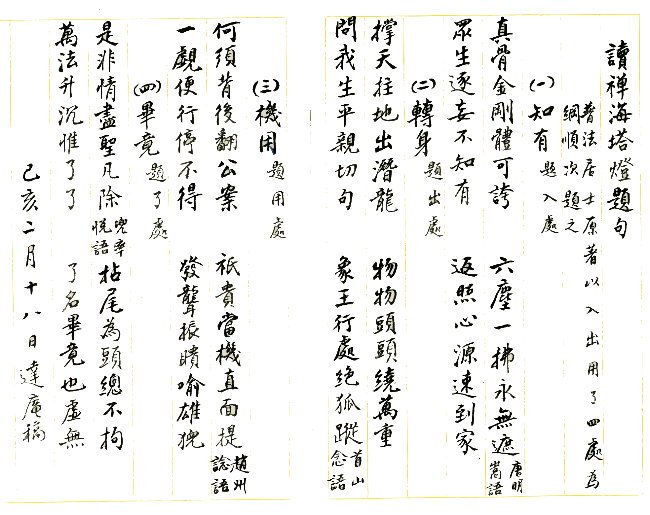 讀禪海塔燈題句
普法居士原著以入出用了四處為
綱順次題之
(一)知有 題入處
真骨金剛體可誇 六塵一拂永無遮 唐明嵩語
眾生逐妄不知有 返照心源速到家
(二)轉身 題出處
撐天拄地出潛龍 物物頭頭繞萬重
問我生平親切句 象王行處絕狐蹤 首山念語
(三)機用 題用處
何須背後翻公案 祇貴當機直面提 趙州諗語
一覷便行停不得 發聾振聵喻雄猊
(四)畢竟 題了處
是非情盡聖凡除 兜率悅語 拈尾為頭總不拘
萬法升沉惟了了 了名畢竟也虛無
己亥二月十八日達廬稿